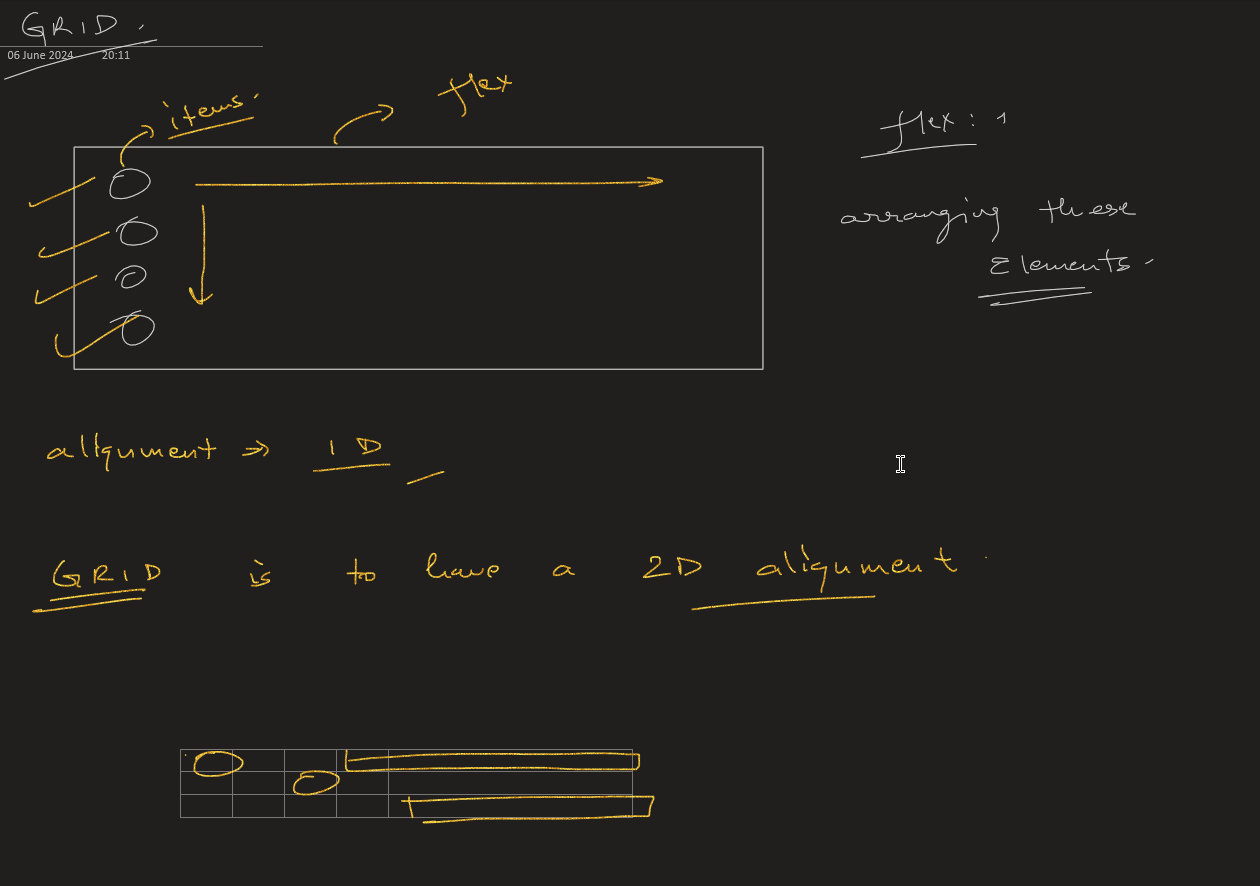 GRID.
06 June 2024 20:11
items.
flex
flex: 1
arranging these
Elements.
alignment → 1D
GRID is to have a 2D alignment.